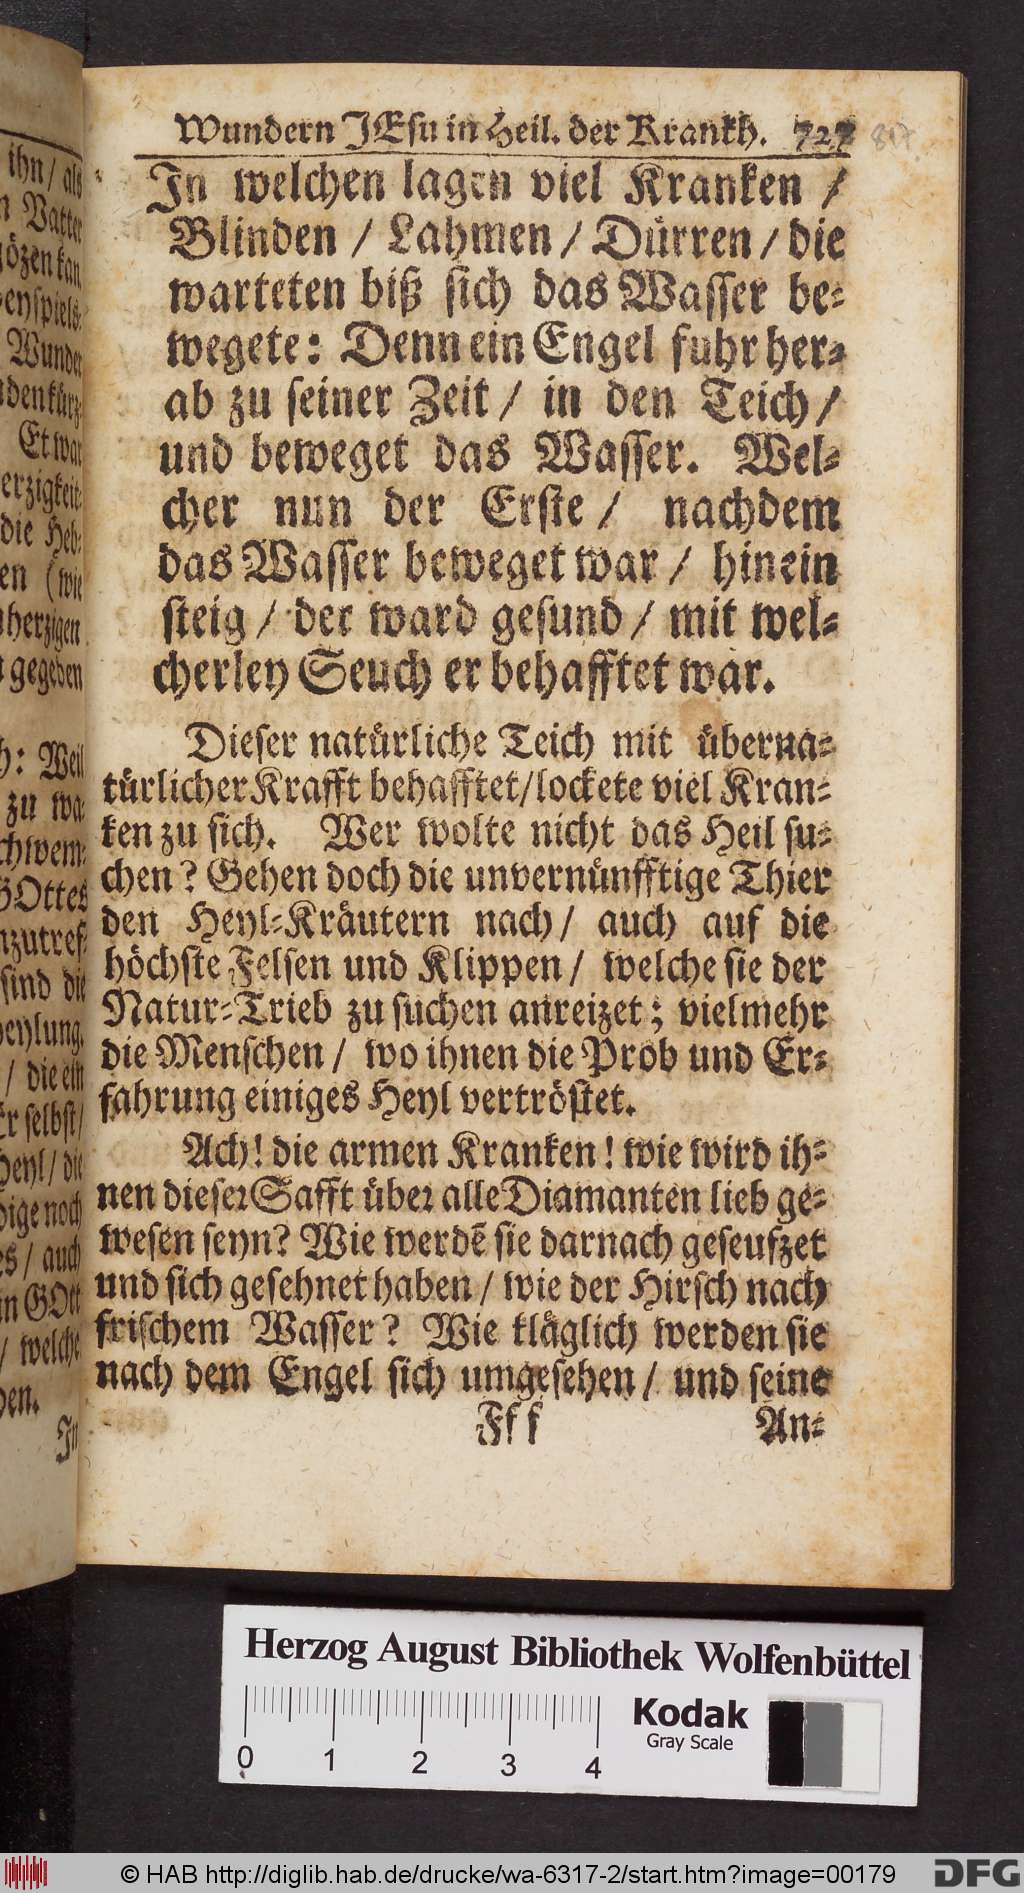 ihn / als
n Vatter
özen kan
eyspiels-
Wunder
den kürz-
Et war
erzigkeit
die Heb-
en (wie
herzigen
gegeben
h: Weil
zu wa-
chwem-
GOttes
nzutref-
sind die
heylung.
/ die ein
Er selbst /
Heyl / die
dige noch
es / auch
in GOtt
/ welche
hen.
In
Wundern JEsu in Heil. der Krankh. 727 817.
In welchen lagen viel Kranken /
Blinden / Lahmen / Dürren / die
warteten biß sich das Wasser be-
wegete: Denn ein Engel fuhr her-
ab zu seiner Zeit / in den Teich /
und beweget das Wasser. Wel-
cher nun der Erste / nachdem
das Wasser beweget war / hinein
steig / der ward gesund / mit wel-
cherley Seuch er behafftet war.
Dieser natürliche Teich mit überna-
türlicher Krafft behafftet / lockete viel Kran-
ken zu sich. Wer wolte nicht das Heil su-
chen? Gehen doch die unvernünfftige Thier
den Heyl-Kräutern nach / auch auf die
höchste Felsen und Klippen / welche sie der
Natur-Trieb zu suchen anreizet; vielmehr
die Menschen / wo ihnen die Prob und Er-
fahrung einiges Heyl vertröstet.
Ach! die armen Kranken! wie wird ih-
nen dieser Safft über alle Diamanten lieb ge-
wesen seyn? Wie werdē sie darnach geseufzet
und sich gesehnet haben / wie der Hirsch nach
frischem Wasser? Wie kläglich werden sie
nach dem Engel sich umgesehen / und seine
Fff An-
Herzog August Bibliothek Wolfenbüttel
Kodak
Gray Scale
0 1 2 3 4
© HAB http://diglib.hab.de/drucke/wa-6317-2/start.htm?image=00179
DFG